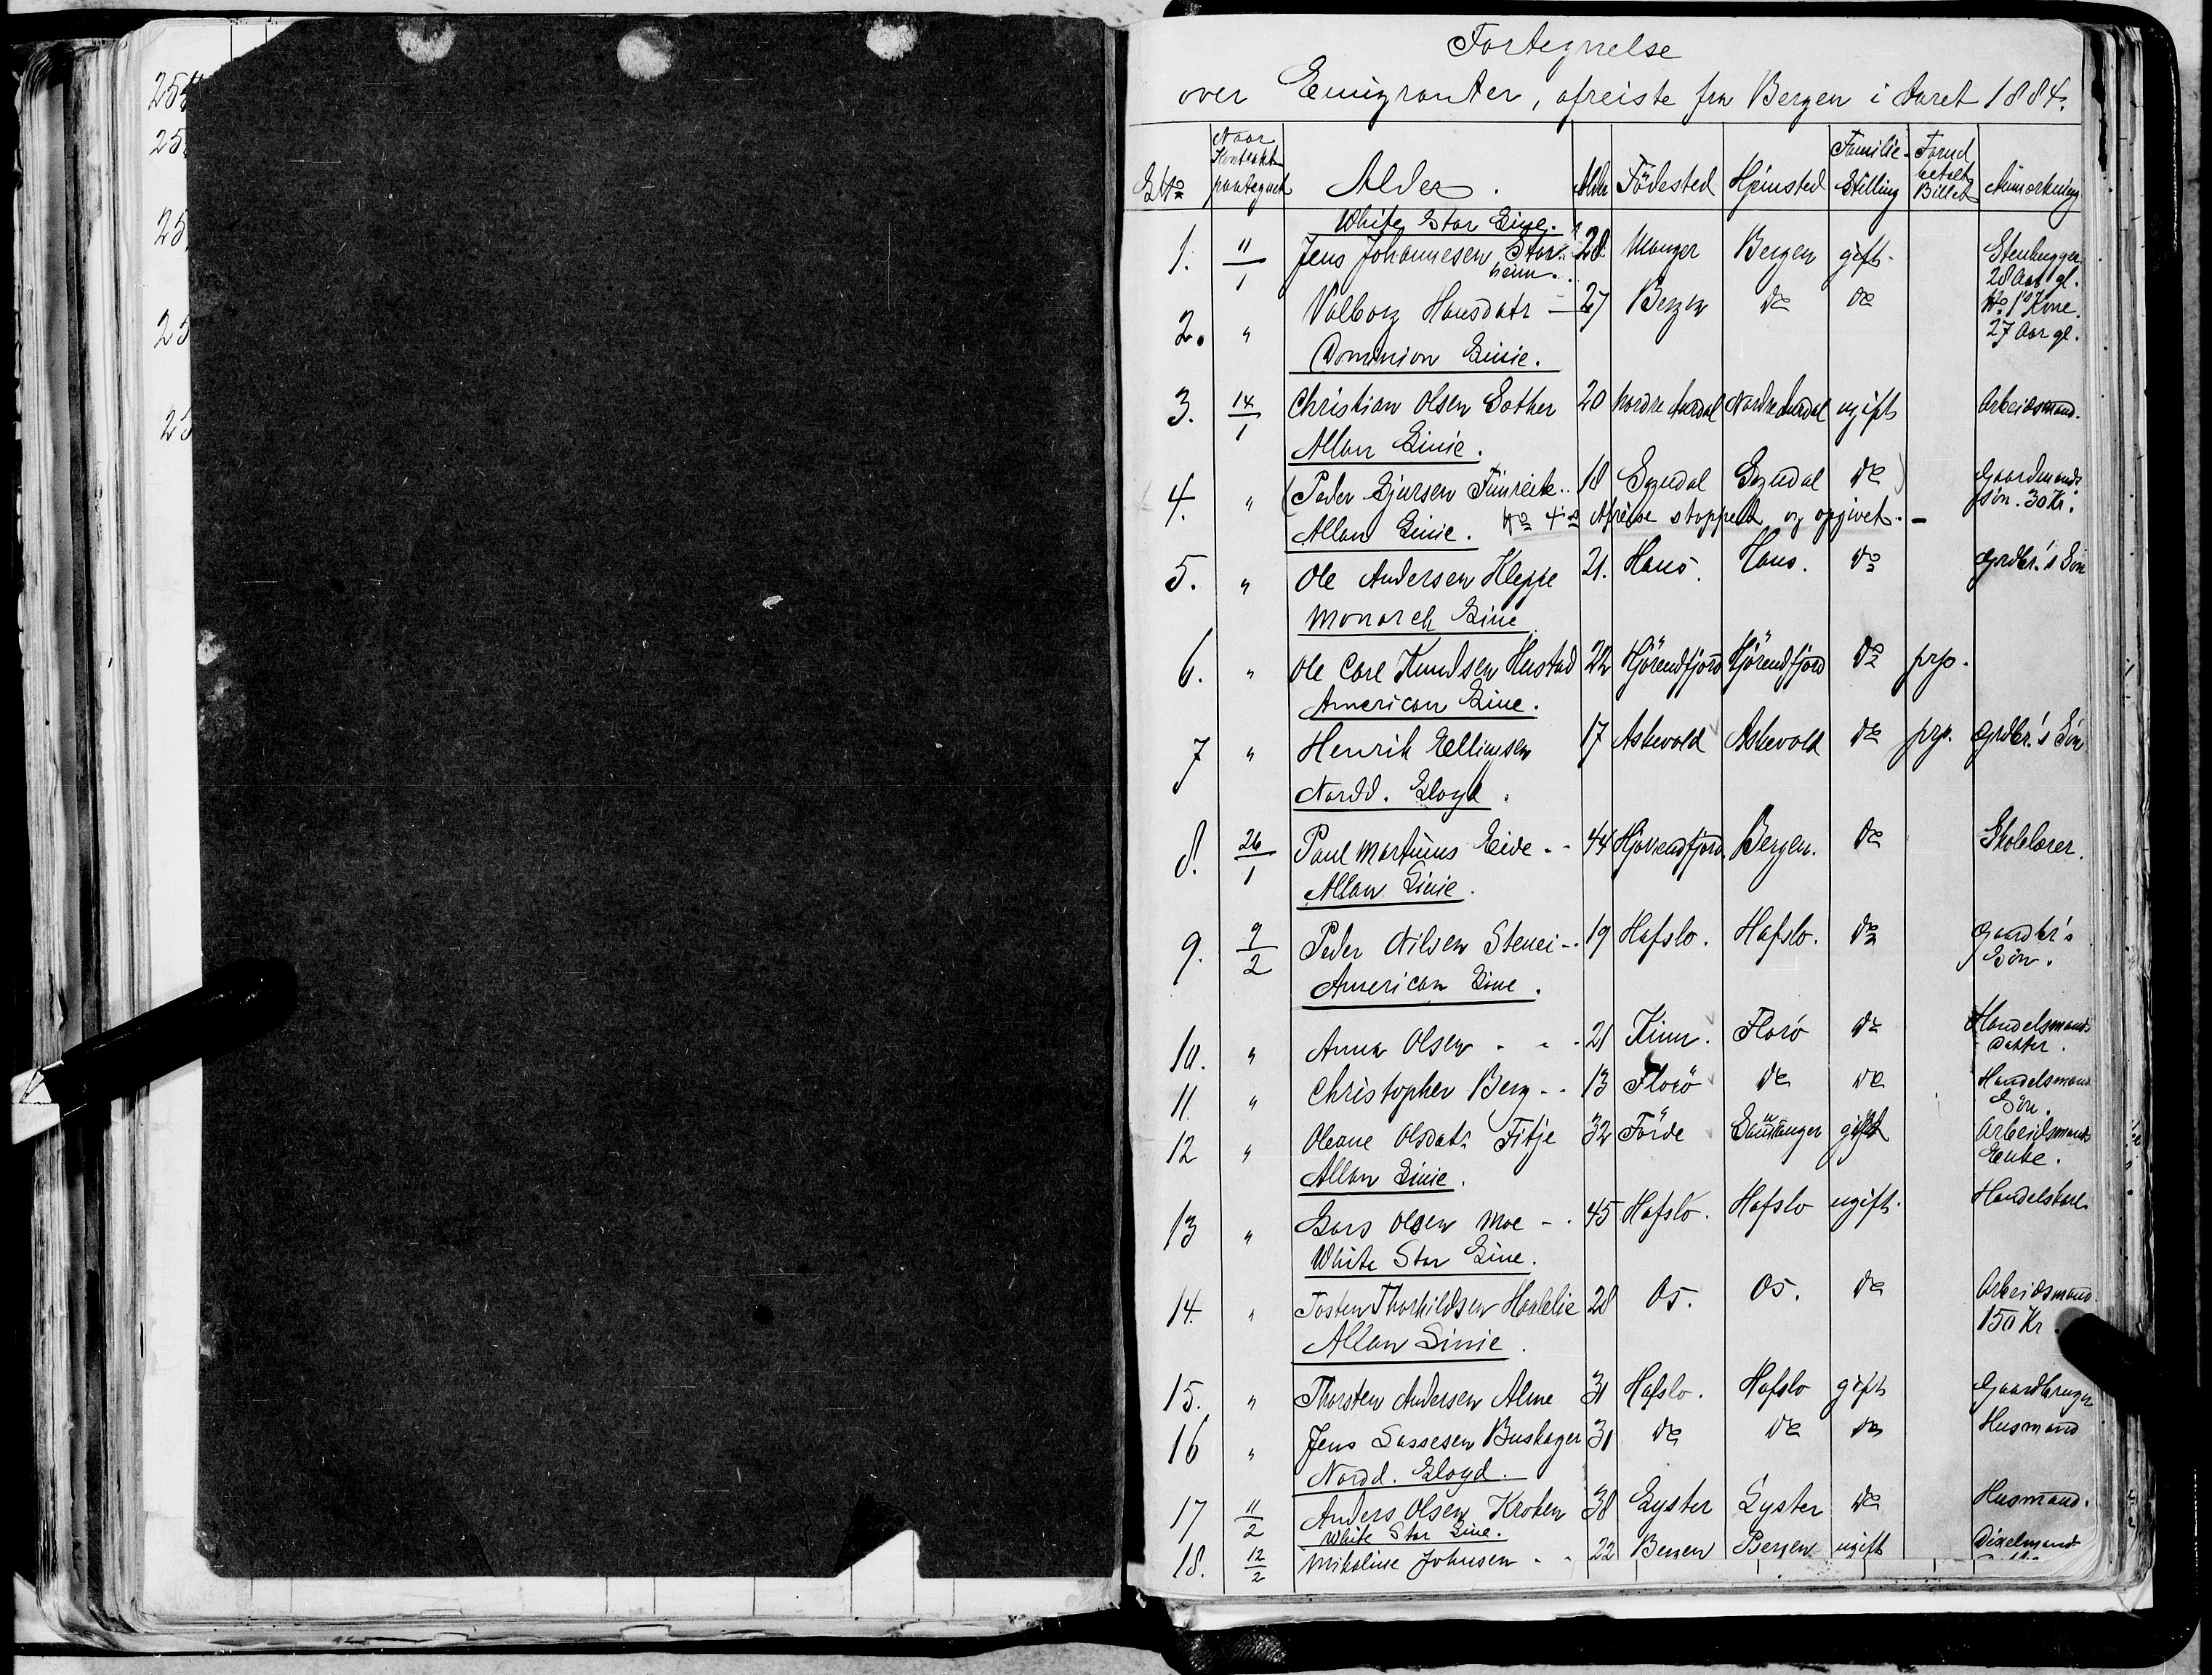 Fortegnelse
over Emigranter, afreiste fra Bergen i Aaret 1884.
No Naar Kontrakt paategnet Alder. Alder Födested Hjemsted Familie Stilling Forud betalt Billet Anmærkning
White Star Line.
1. 11/1 Jens Johannesen Stor- 28 Manger Bergen gift. Stenhugger
heim. 28 Aar gl.
2. " Valborg Hansdatr — 27 Bergen do do No 1's Kone.
27 Aar gl.
Dominion Linie.
3. 14/1 Christian Olsen Sother 20 Nordre Aurdal Nordre Aurdal ugift Arbeidsmand.
Allan Linie.
4. " Peder Gjursen Fimreite.. 18 Sogndal Sogndal do Gaardmands
Søn. 30 Kr.
Allan Linie. No 4's Afreise stoppet og opgivet. —
5. " Ole Andersen Kleppe 21. Haus. Haus. do Grdbr.'s Søn
Monarch Line
6. " Ole Carl Knudsen Hustad 22 Hjörendfjord Hjörendfjord do prp.
American Line.
7 " Henrik Ellingsen 17 Askevold Askevold do prp. Grdbr.'s Søn
Nordd. Lloyd.
8. 26/1 Paul Martinus Eide - - 44 Hjörendfjord. Bergen. do Skolelærer.
Allan Linie.
9. 9/2 Peder Nilsen Stenei - . 19 Hafslo. Hafslo. do Gaardbr's
Søn.
American Line.
10. " Anna Olsen - - - 21 Kinn. Florö do Handelsmands
Datter.
11. " Christopher Berg - - 13 Florö do do Handelsmand
Søn.
12 " Oleane Olsdatr Fitje 32 Förde gift Arbeidsmands
Enke.
Allan Linie.
13 " Lars Olsen Moe - . 45 Hafslo. Hafslo ugift. Handelskarl
White Star Line.
14. " Tosten Thorkildsen Haalelie 28 Os. Os. do Arbeidsmand.
150 Kr.
Allan Linie.
15. " Thorsten Andersen Alme 31 Hafslo. Hafslo gift Gaardbruger
16 " Jens Lassesen Buskager 31 do do do Husmand
Nordd. Lloyd.
17 11/2 Anders Olsen Kroken 38 Lyster Lyster do Husmand.
White Star Line.
18. 12/2 Nikoline Johnsen - - 22 Bergen Bergen ugift